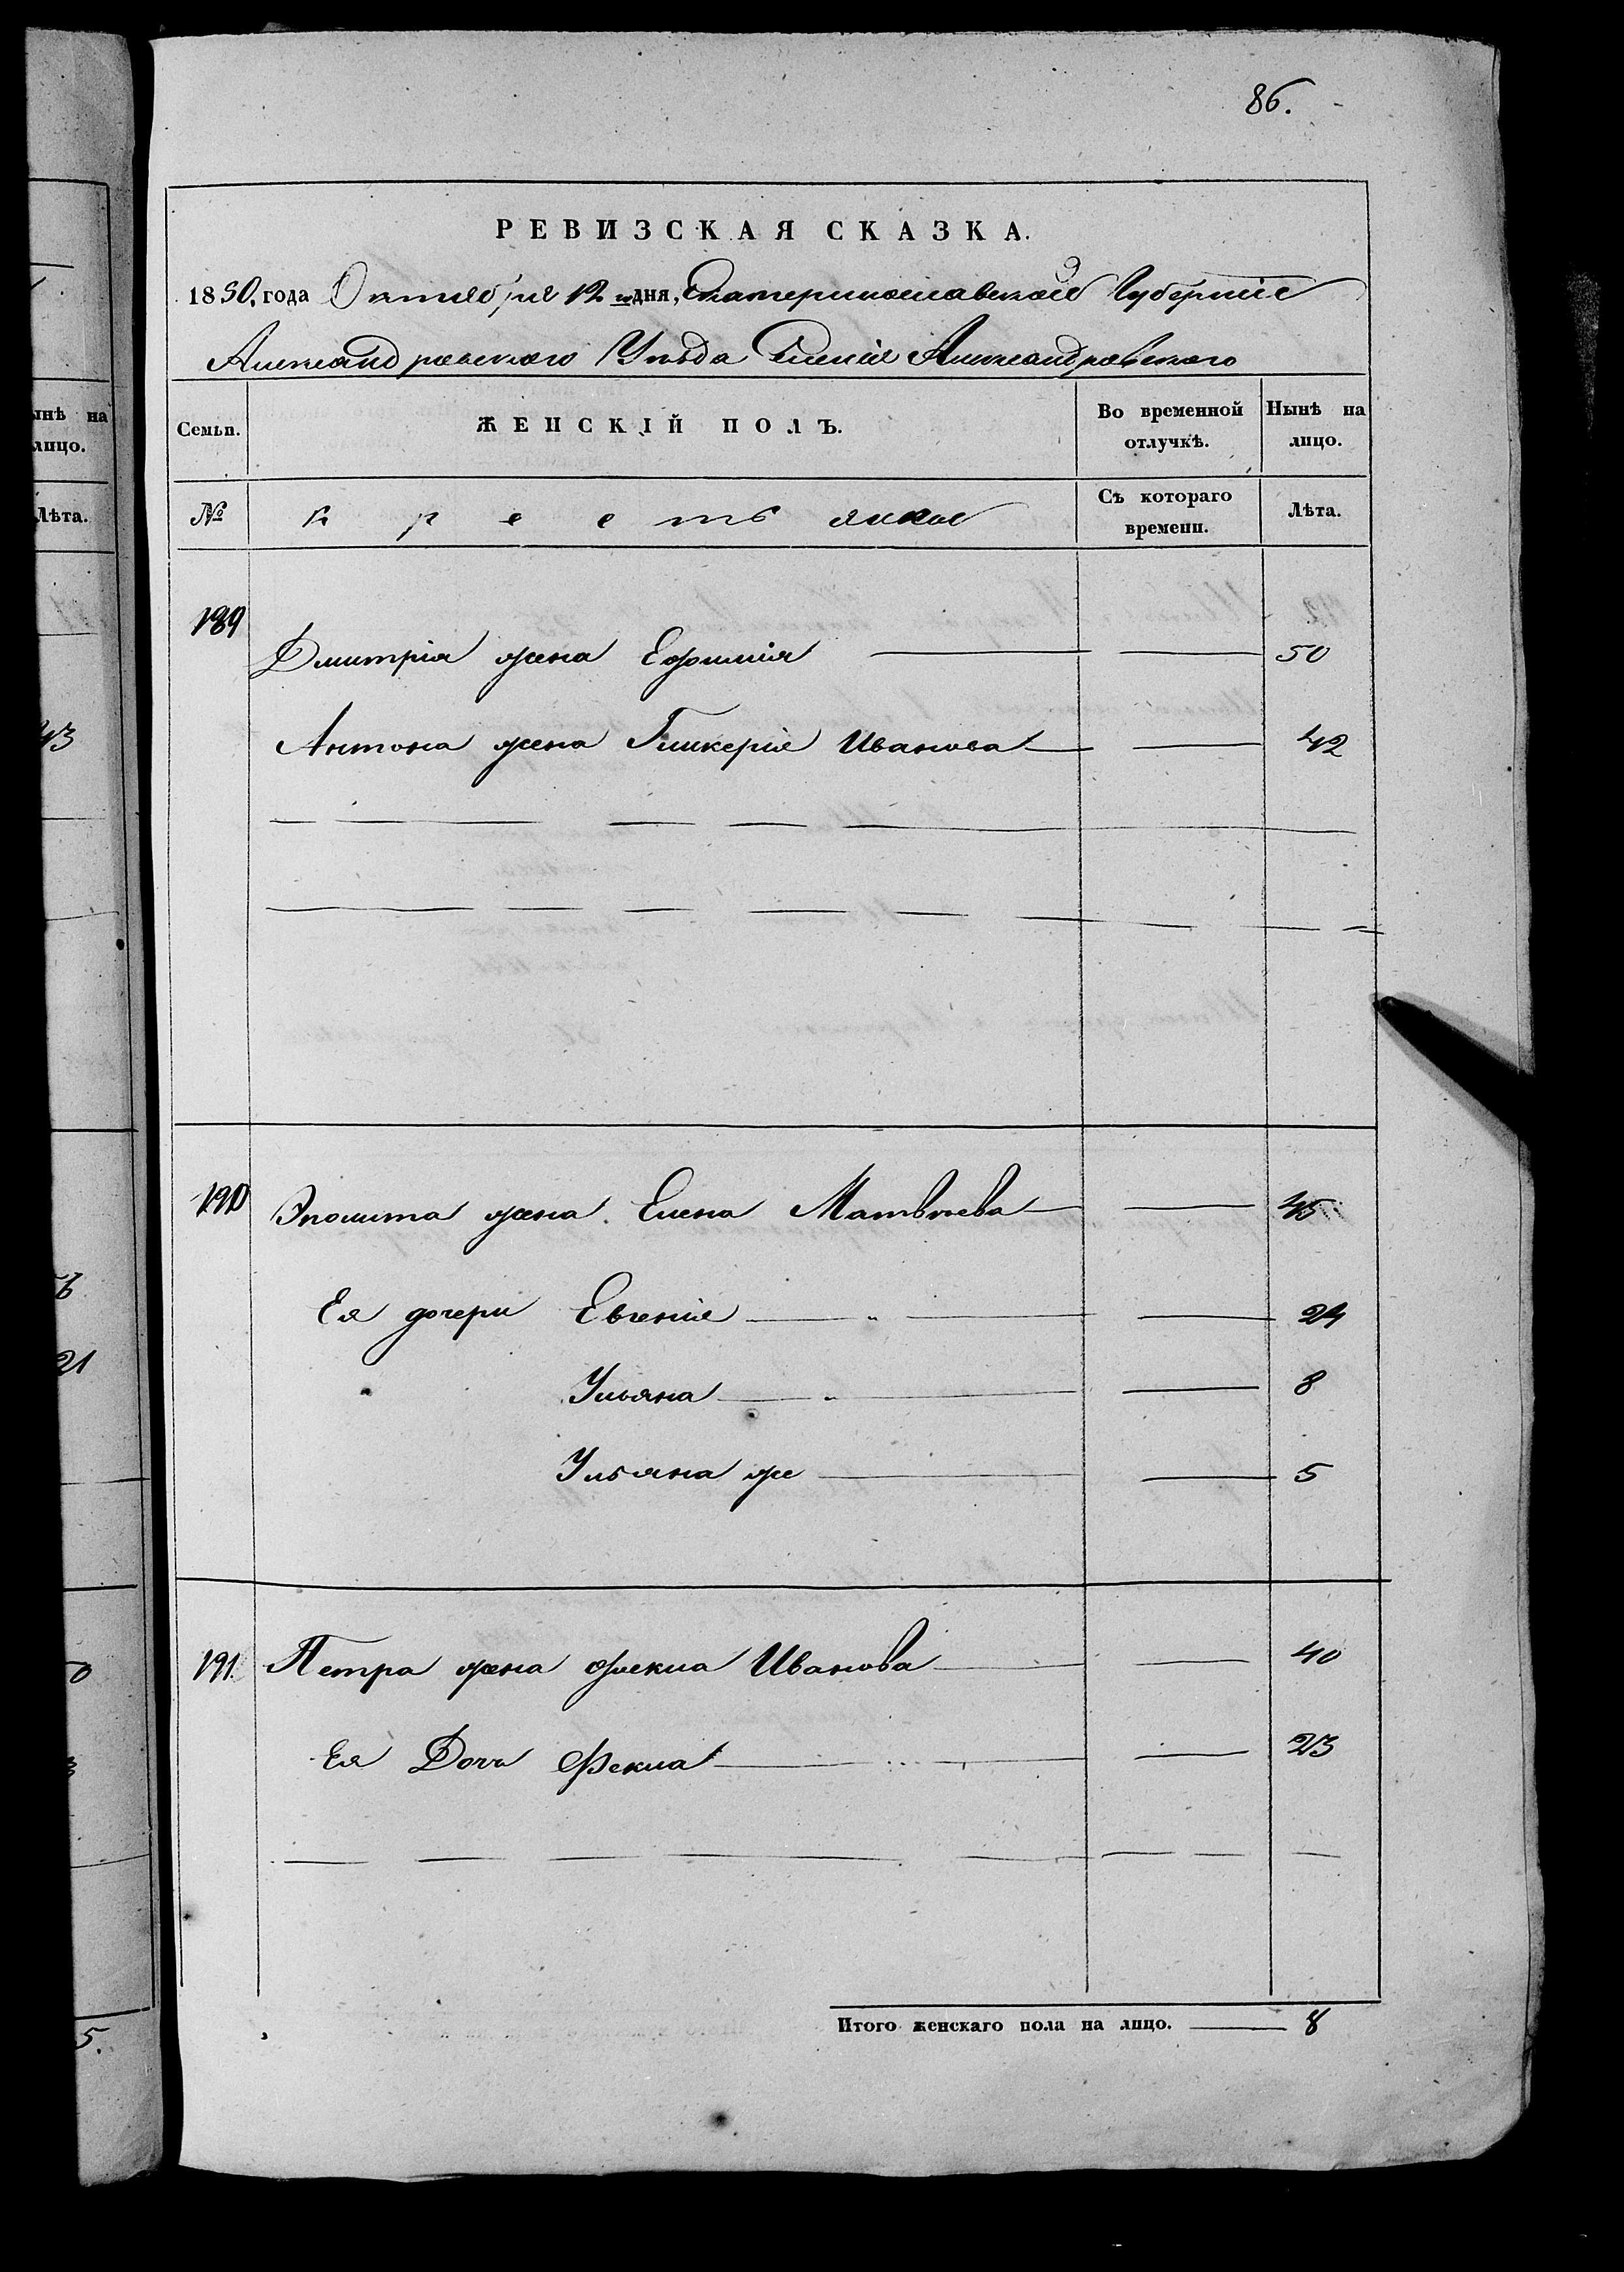 86.
РЕВИЗСКАЯ СКАЗКА.
1850, года Октября 12 го дня, Екатеринославской Губернiи
Александровскаго Уѣзда Селенiя Александровскаго
ынѣ на
лицо.
Семьи.
ЖЕНСКIЙ ПОЛЪ.
Во временной отлучкѣ.
Нынѣ на лицо.
Лѣта.
№
крестьянки
Съ котораго времени.
Лѣта.
189
Дмитрiя жена Ефимiя 50
43
Антона жена Гликерiя Иванова 42
190 Иполита жена Елена Матвѣева 45
Ея дочери Евгенiя 24
21
Ульяна 8
Ульяна же 5
191. Петра жена Фекла Иванова 40
Ея Дочь Фекла 23
Итого женскаго пола на лицо. 8
5.